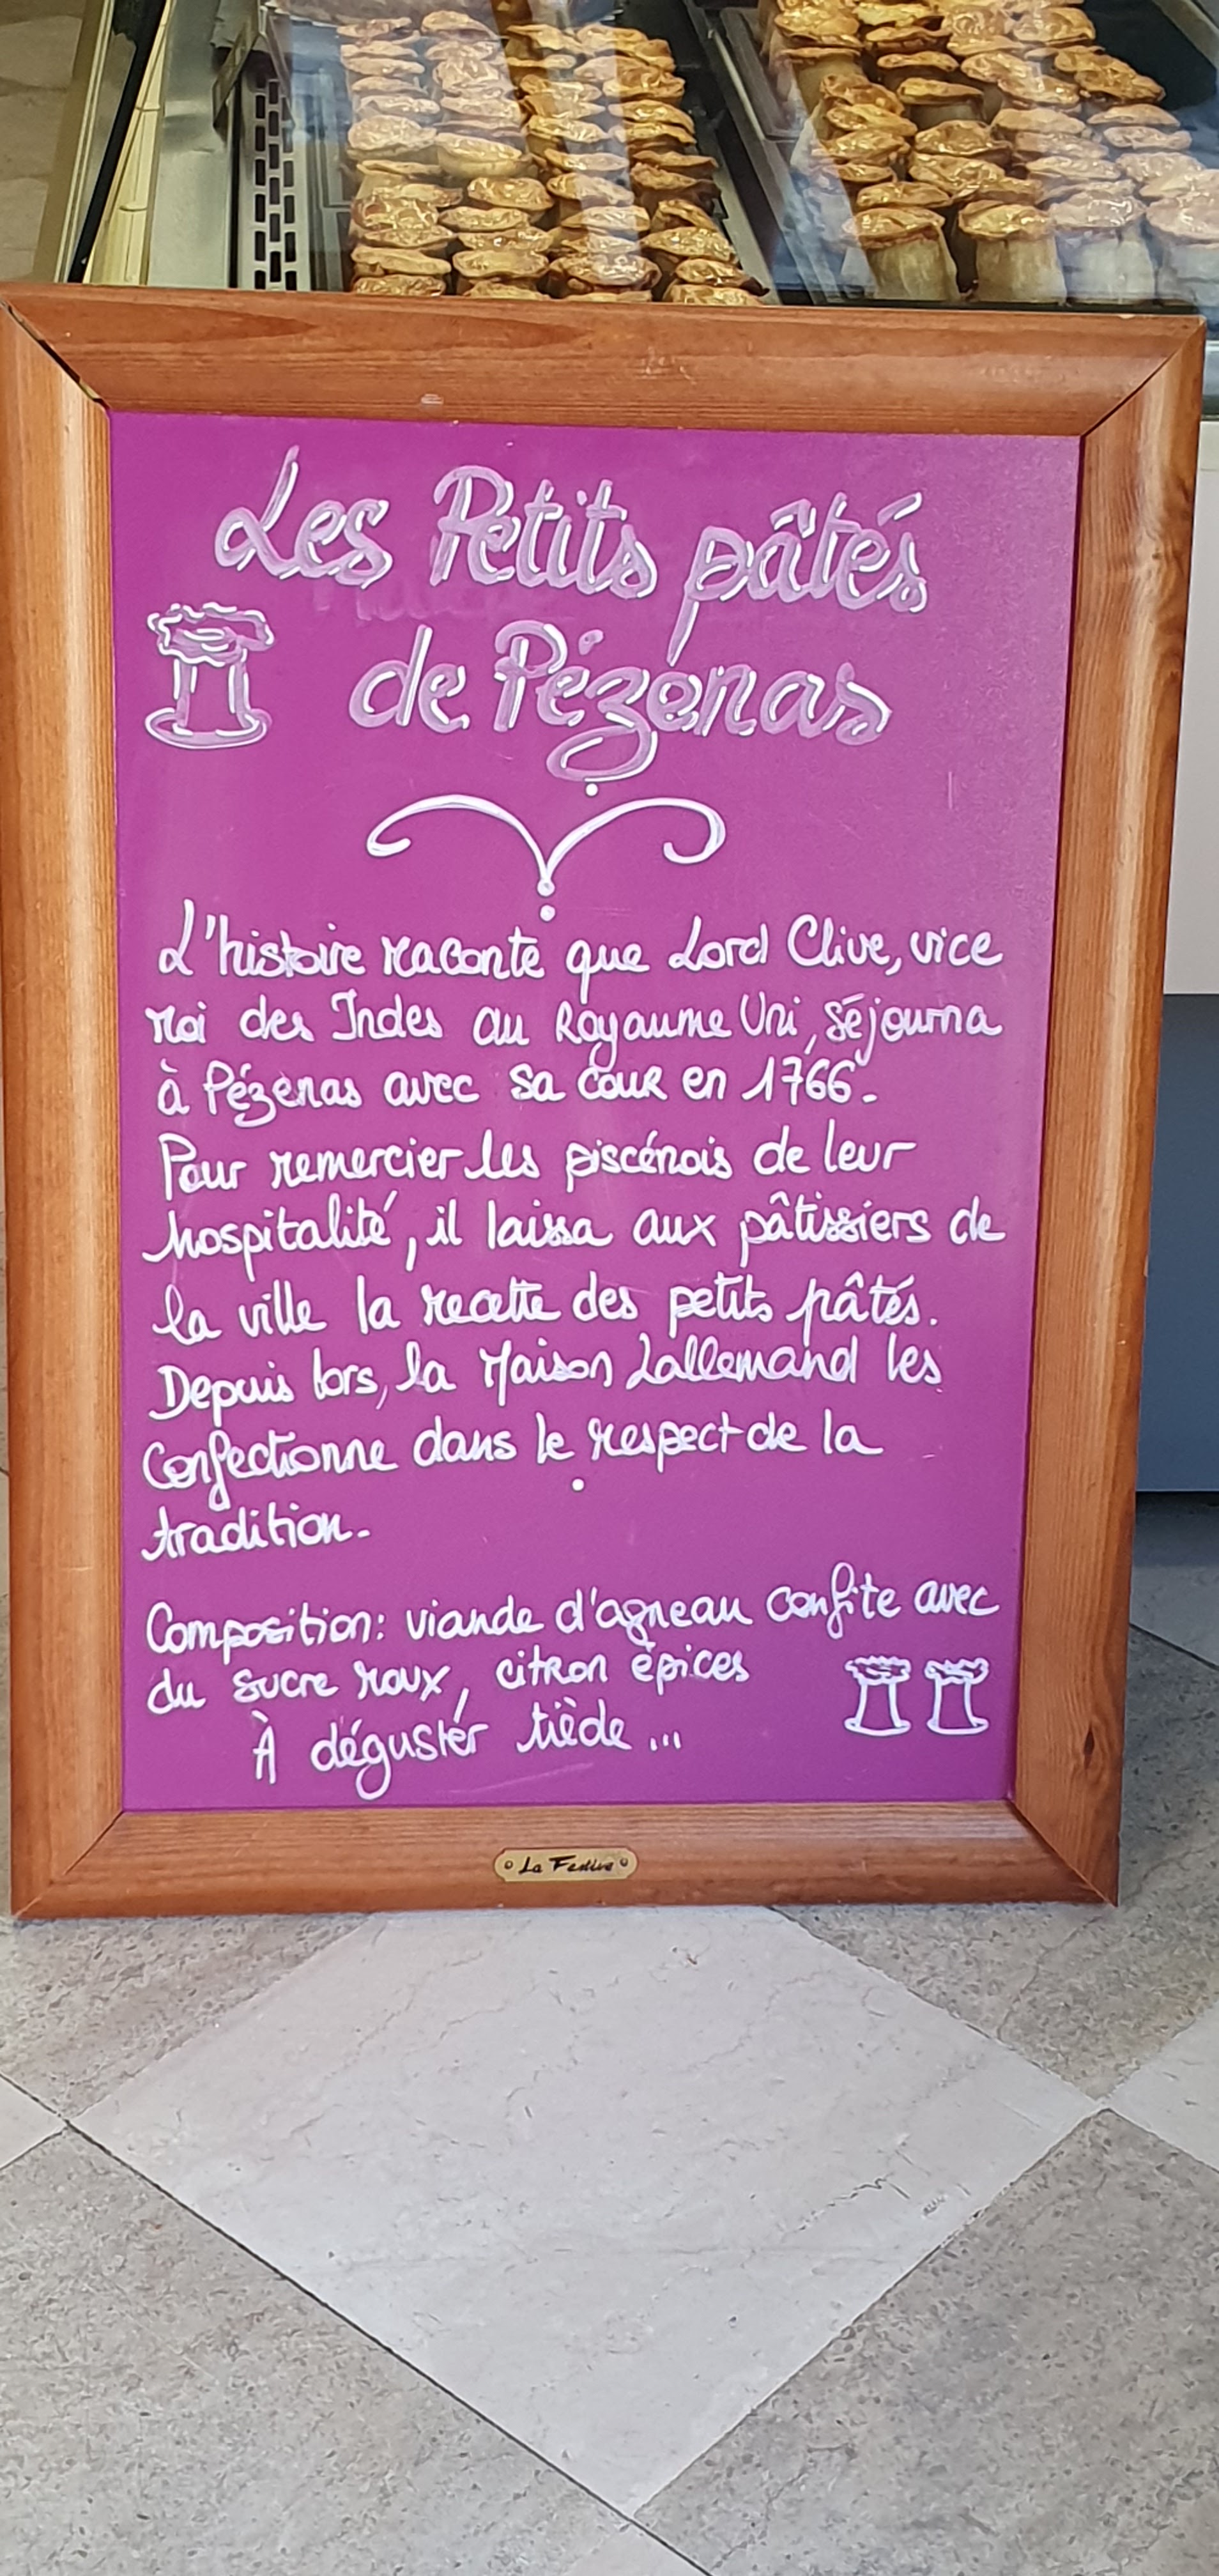 Les Petits pâtés
de Pézenas
L'histoire raconte que Lord Clive, vice
roi des Indes au Royaume Uni, séjourna
à Pézenas avec sa cour en 1766.
Pour remercier les piscénois de leur
hospitalité, il laissa aux pâtissiers de
la ville la recette des petits pâtés.
Depuis lors, la Maison Lallemand les
Confectionne dans le respect de la
tradition.
Composition: viande d'agneau confite avec
du sucre roux, citron épices
À déguster tiède...
La Festive